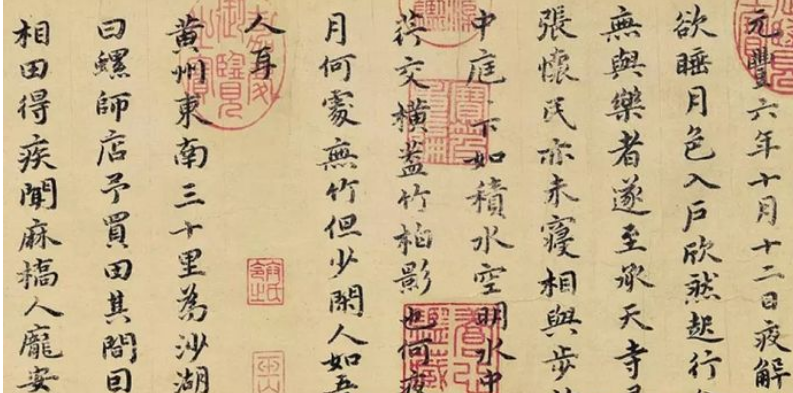 元豐六年十月十二日夜解
欲睡月色入戶欣然起行
無與樂者遂至承天寺
張懷民亦未寢相與步
中庭〻下如積水空明水中
荇交橫蓋竹柏影也何夜
月何處無竹但少閑人如吾
人耳
黃州東南三十里為沙湖
曰螺師店予買田其間因
相田得疾聞麻橋人龐安